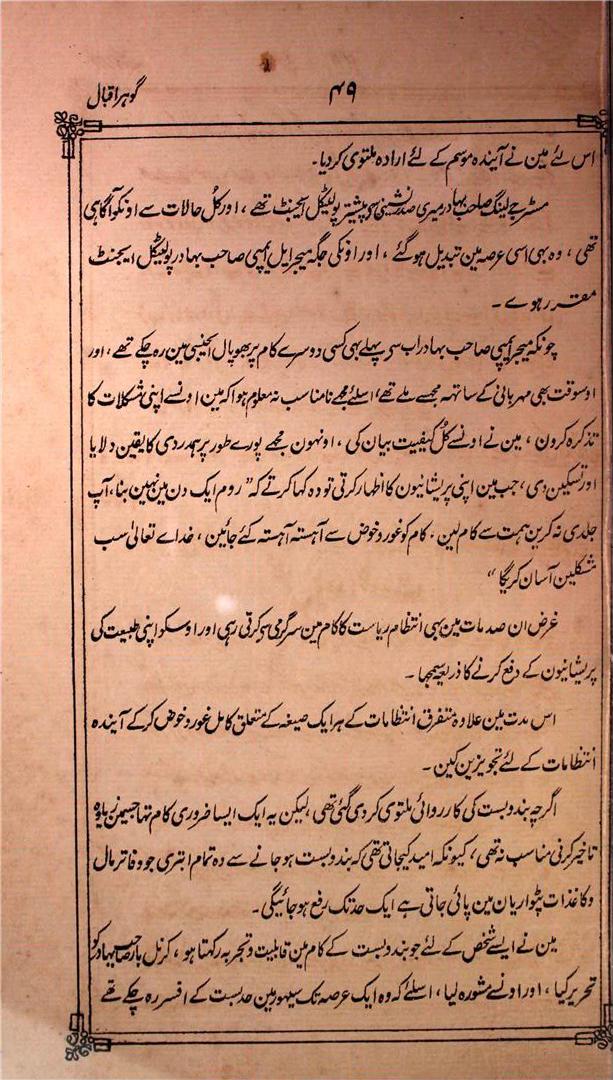 گوہر اقبال
۴۹
اس لئے مین نے آیندہ موسم کے لئے ارادہ ملتوی کردیا۔
مسٹر جے لینگ صاحب بہادر میری صدر نشینی سی پیشتر پولیٹکل ایجنٹ تھے ، اور کل حالات سے اونکو آگاہی
تھی ، وہ بہی اسی عرصہ مین تبدیل ہوگئے ، اور اونکی جگہ میجر ایل ایمپی صاحب بہادر پولیٹکل ایجنٹ
مقرر ہوے ۔
چونکہ میجر ایمپی صاحب بہادر اب سی پہلے بہی کسی دوسرے کام پر بھوپال ایجنسی مین رہ چکے تھے ، اور
اوسوقت بھی مہربانی کے ساتہہ مجھسے ملے تھے ، اسلئے مجھے نامناسب نہ معلوم ہوا کہ مین اونسے اپنی مشکلات کا
تذکرہ کرون ، مین نے اونسے کل کیفیت بیان کی ، اونہون نے مجھے پورے طور پر ہمدردی کا یقین دلایا
اور تسکین دی ، جب مین اپنی پریشانیون کا اظہار کرتی تو وہ کہا کرتے کہ ” روم ایک دن مین نہین بنا ، آپ
جلدی نہ کرین ہمت سے کام لین ۔ کام کو غور و خوض سے آہستہ آہستہ کئے جائین ، خداے تعالیٰ سب
مشکلین آسان کریگا “
غرض ان صدمات مین بہی انتظام ریاست کا کام مین سرگرمی سی کرتی رہی اور اوسکو اپنی طبیعت کی
پریشانیون کے دفع کرنے کا ذریعہ سمجہا ۔
اس مدت مین علاوہ متفرق انتظامات کے ہر ایک صیغہ کے متعلق کامل غور و خوض کرکے آیندہ
انتظامات کے لئے تجویزین کین ۔
اگرچہ بندوبست کی کارروائی ملتوی کردی گئی تھی ، لیکن یہ ایک ایسا ضروری کام تہا جسمین زیادہ
تاخیر کرنی مناسب نہ تھی ، کیونکہ امید کیجاتی تھی کہ بندوبست ہوجانے سے وہ تمام ابتری جو دفاتر مال
و کاغذات پٹواریان مین پائی جاتی ہے ایک حد تک رفع ہوجائیگی ۔
مین نے ایسے شخص کے لئے جو بندوبست کے کام مین قابلیت و تجربہ رکھتا ہو ، کرنل بار صاحب بہادر کو
تحریر کیا ، اور اونسے مشورہ لیا ، اسلئے کہ وہ ایک عرصہ تک سیہور مین حد بست کے افسر رہ چکے تھے